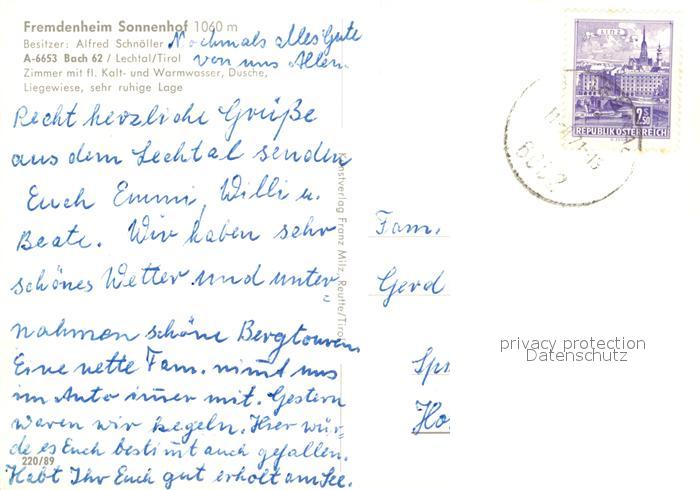 Fremdenheim Sonnenhof 1060 m
Besitzer: Alfred Schnöller
A-6653 Bach 62 / Lechtal/Tirol
Zimmer mit fl. Kalt- und Warmwasser, Dusche,
Liegewiese, sehr ruhige Lage
Nochmals alles Gute
von uns Allen.
Recht herzliche Grüße
aus dem Lechtal senden
Euch Emmi, Willi u.
Beate. Wir haben sehr
schönes Wetter und unter=
nahmen schöne Bergtouren
Eine nette Fam. nimt uns
im Auto imer mit. Gestern
waren wir kegeln. Hier wür=
de es Euch bestimt auch gefallen.
Habt Ihr Euch gut erholt am See.
220/89
Kunstverlag Franz Milz, Reutte/Tirol
LINZ
2.50
S
REPUBLIK ÖSTERREICH
Fam.
Gerd
Spr
Ho
privacy protection
Datenschutz